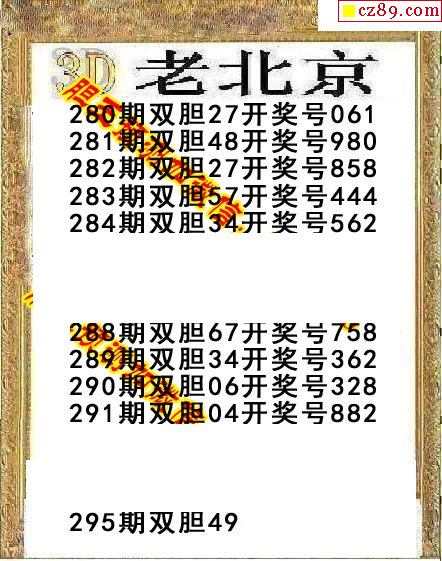 cz89.com
3D 老北京
280期双胆27开奖号061
281期双胆48开奖号980
282期双胆27开奖号858
283期双胆57开奖号444
284期双胆34开奖号562
288期双胆67开奖号758
289期双胆34开奖号362
290期双胆06开奖号328
291期双胆04开奖号882
295期双胆49